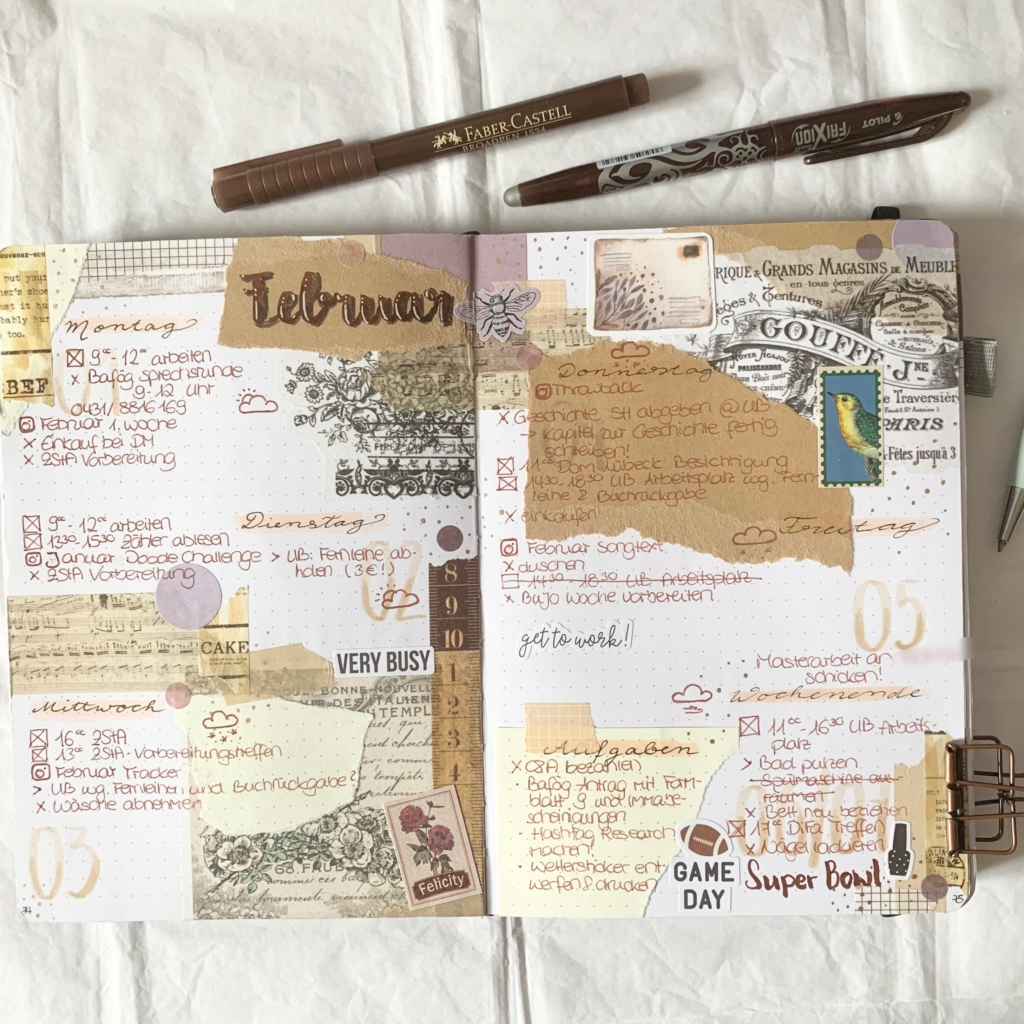 FABER-CASTELL
BROADPEN 1554
PILOT
FRIXION
Februar
Montag
9⁰⁰-12⁰⁰ arbeiten
x Bafög Sprechstunde
9-12 Uhr
0431/8816 169
Februar 1. Woche
x Einkauf bei DM
x 2StA Vorbereitung
BEF
put your
too.
Dienstag
9⁰⁰-12⁰⁰ arbeiten
13³⁰-15³⁰ Zähler ablesen
Januar Doodle Challenge > UB: Fernleihe ab-
x 2StA Vorbereitung
holen (3€!)
02
8
9
10
1
2
3
4
CAKE
VERY BUSY
Mittwoch
16⁰⁰ 2StA
13⁰⁰ 2StA-Vorbereitungstreffen
Februar Tracker
> UB wg. Fernleihen und Buchrückgabe?
x Wäsche abnehmen
03
BONNE-NOUVELL
DES ITALIENS
TEMPL
Felicity
74
RIQUE & GRANDS MAGASINS DE MEUBL
en tous genres
Tentures
GOUFFÉ Jne
NOYER ACAJOU
Traversière
PARIS
Fêtes jusqu'à 3
Donnerstag
Throwback
x Geschichte SH abgeben @ UB
> Kapitel zur Geschichte fertig
schreiben!
11⁰⁰ Dom Lübeck Besichtigung
14³⁰-18³⁰ UB Arbeitsplatz wg. Fern-
leihe & Buchrückgabe
x einkaufen
Freitag
Februar Songtext
x duschen
14³⁰-18³⁰ UB Arbeitsplatz
x BuJo Woche vorbereiten
05
get to work!
Masterarbeit an
schicken!
Wochenende
11⁰⁰-16³⁰ UB Arbeits-
platz
> Bad putzen
Spülmaschine aus-
räumen
x Bett neu beziehen
17⁰⁰ DiPa Treffen
x Nägel lackieren
Super Bowl
GAME
DAY
Aufgaben
x bezahlen
· Bafög Antrag mit Form-
blatt 9 und Immase-
scheinigungen
· Hashtag Research
machen!
· Wettersticker ent-
werfen & drucken
75